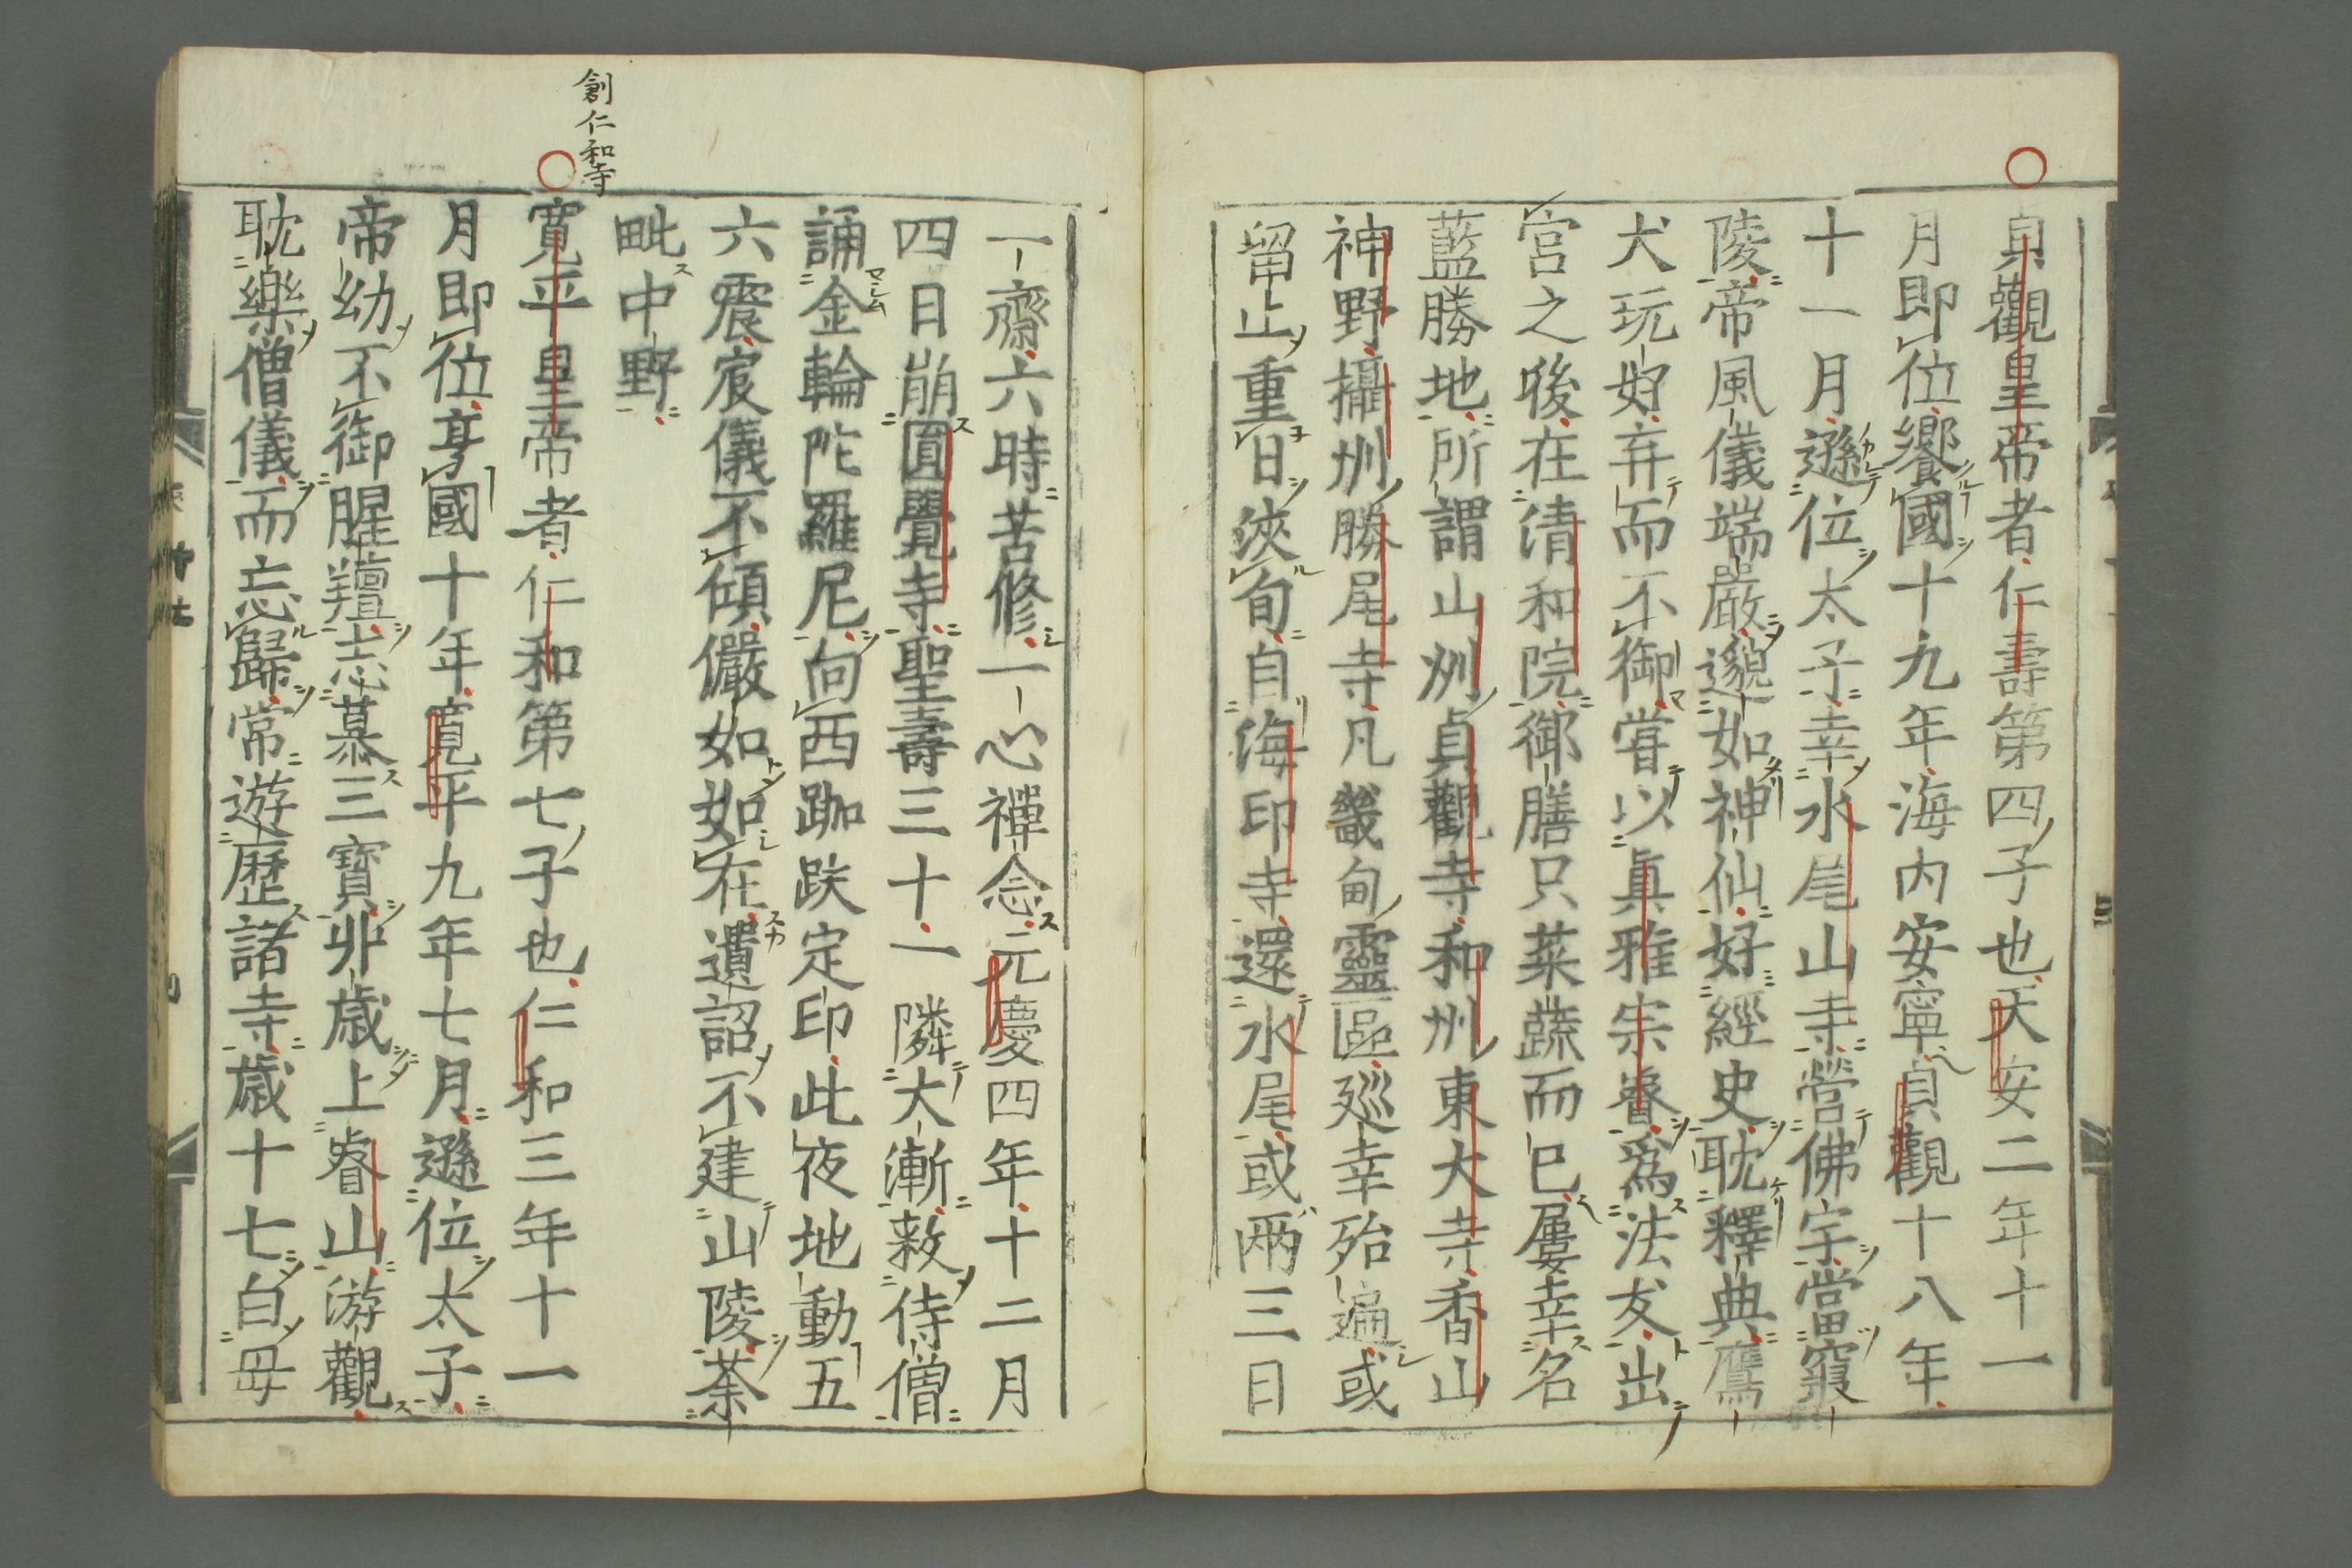 貞觀皇帝者仁壽第四子也天安二年十一
月即位饗國十九年海内安寧貞觀十八年
十一月遜位太子幸水尾山寺營佛宇當窽
陵帝風儀端嚴邈如神仙好經史耽釋典鷹
犬玩好弃而不御甞以眞雅宗睿爲法友出
宮之後在清和院御膳只菜蔬而已屢幸名
藍勝地所謂山州貞觀寺和州東大寺香山
神野攝州勝尾寺凡畿甸靈區廵幸殆遍或
留止重日浹旬自海印寺還水尾或兩三日
一齋六時苦修一心禪念元慶四年十二月
四日崩圓覺寺聖壽三十一隣大漸敕侍僧
誦金輪陀羅尼向西跏趺定印此夜地動五
六震宸儀不傾儼如如在遺詔不建山陵荼
毗中野
創仁和寺
寛平皇帝者仁和第七子也仁和三年十一
月即位享國十年寛平九年七月遜位太子
帝幼不御腥羶志慕三寶丱歳上睿山游觀
耽樂僧儀而忘歸常遊歷諸寺歳十七白母